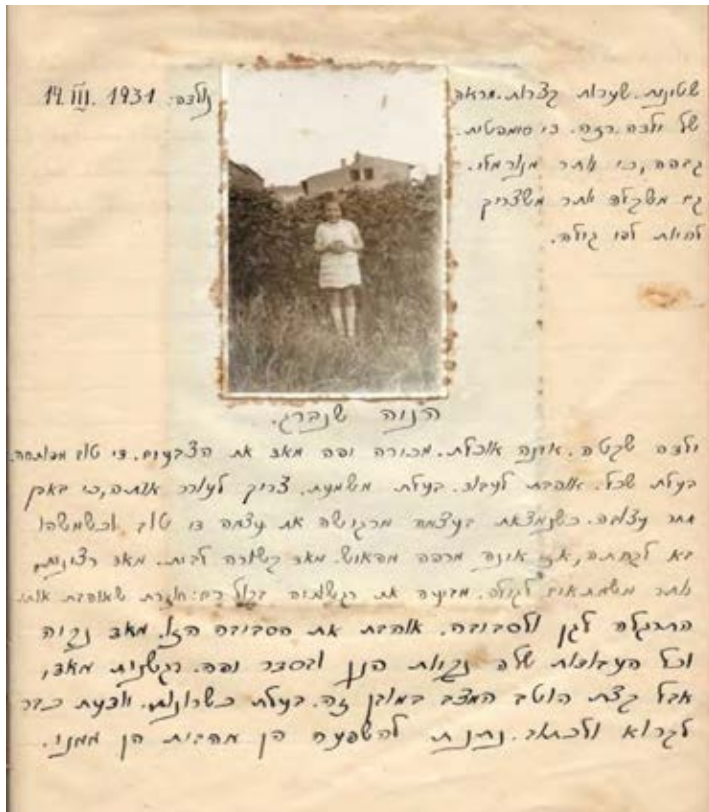 שטינית. שערות קצרות. מראה
נולדה: 14. III. 1931
של ילדה רזה. כי סימפטית.
גבוהה, כי יותר מנורמלי.
גם משקלה יותר משצריך
להיות לפי גילה.
הנוה שנברג.
ילדה שקטה. אינה אוכלת. מכירה יפה מאד את הצבעים. די טוב מפותחת.
בעלת שכל. אוהבת לעבוד. בעלת משמעת. צריך לעורר אותה, כי באבן
עצובה. כשנמצאת בעצמה מרגישה את עצמה די טוב וכשמשהו
בא לקחתה, אז אינה מרפה מהאוש. מאד קשורה לבית. מאד רצינית,
יותר משמתאים לגילה. מביעה את רגשותיה בקול רם: חוזרת שאוהבת אותי.
התרגלה לגן ולסביבה. אוהבת את הסביבה הזו. מאד נקיה
וכל העבודות שלה נקיות הנן ובסדר יפה. רגשנית מאד,
אבל קצת הוטב המצב במובן זה. בעלת כשרונות. יודעת כבר
לקרוא ולכתוב. נתנת להשפעה הן מהבית הן ממני.